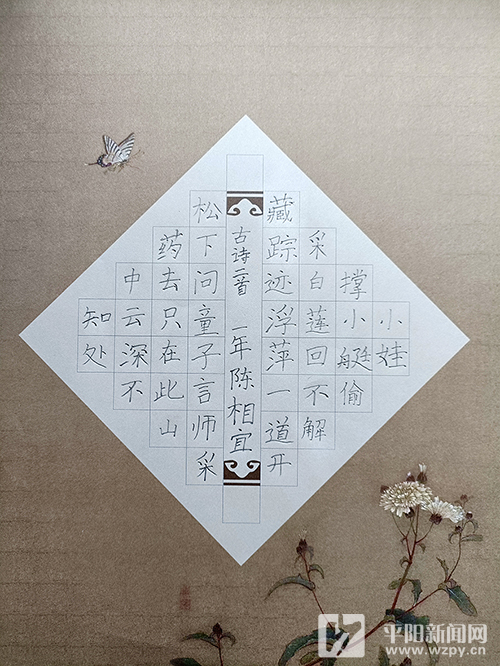 小娃
撑小艇偷
采白莲回不解
藏踪迹浮萍一道开
古诗二首 一年陈相宜
松下问童子言师采
药去只在此山
中云深不
知处
平阳新闻网
www.wzpy.cn